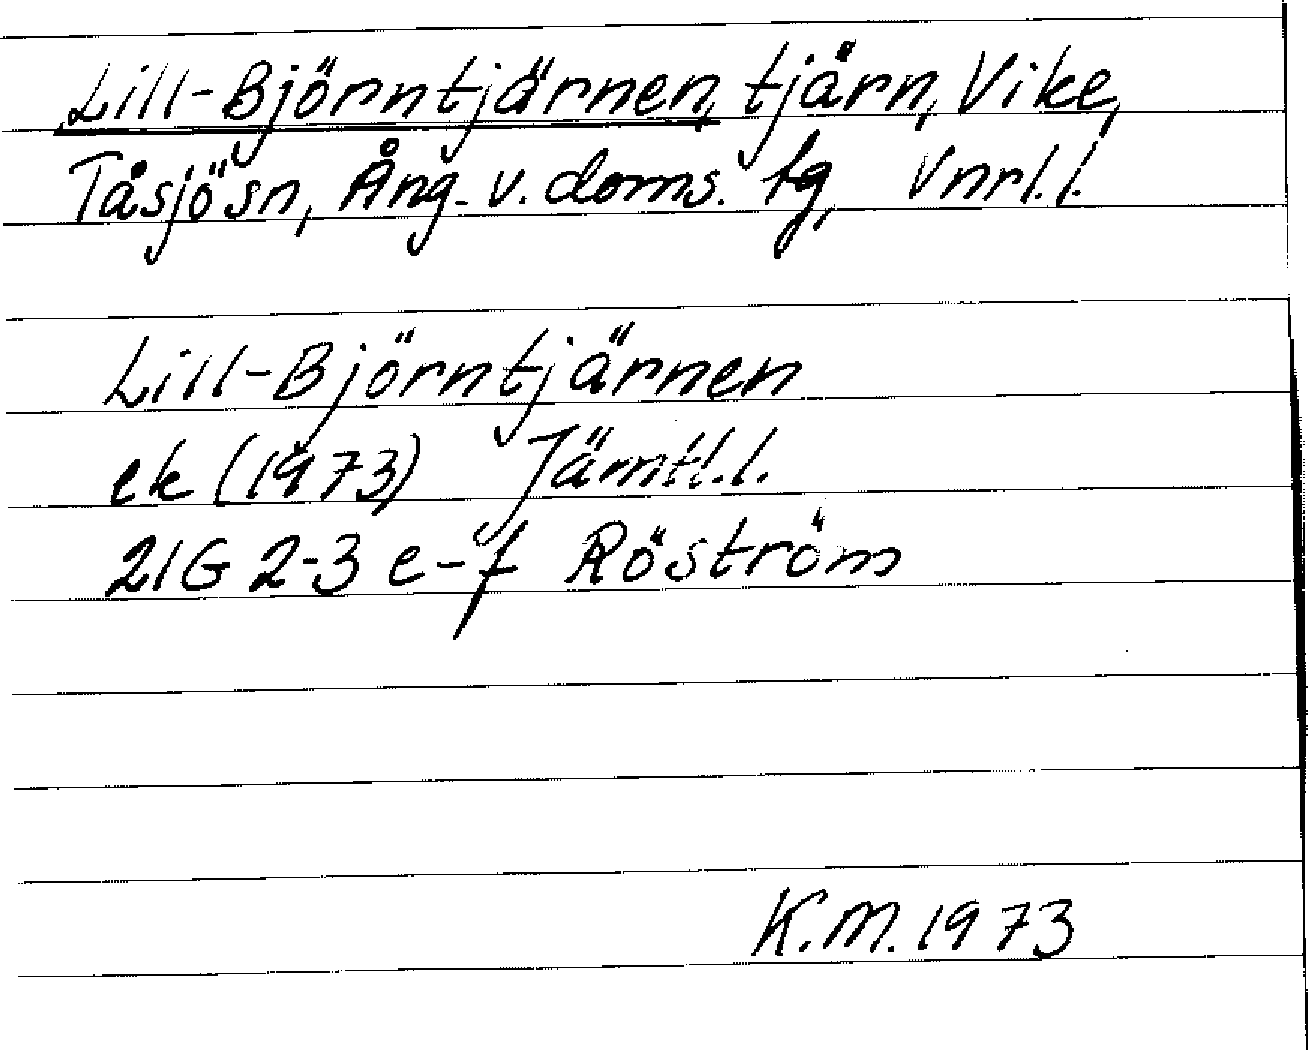 Lill-Björntjärnen, tjärn, Vike,
Tåsjö sn, Ång. v. doms. tg, Vnrl. l.
Lill-Björntjärnen
ek (1973) Jämtl. l.
21G 2-3 e-f Röström
K.M. 1973